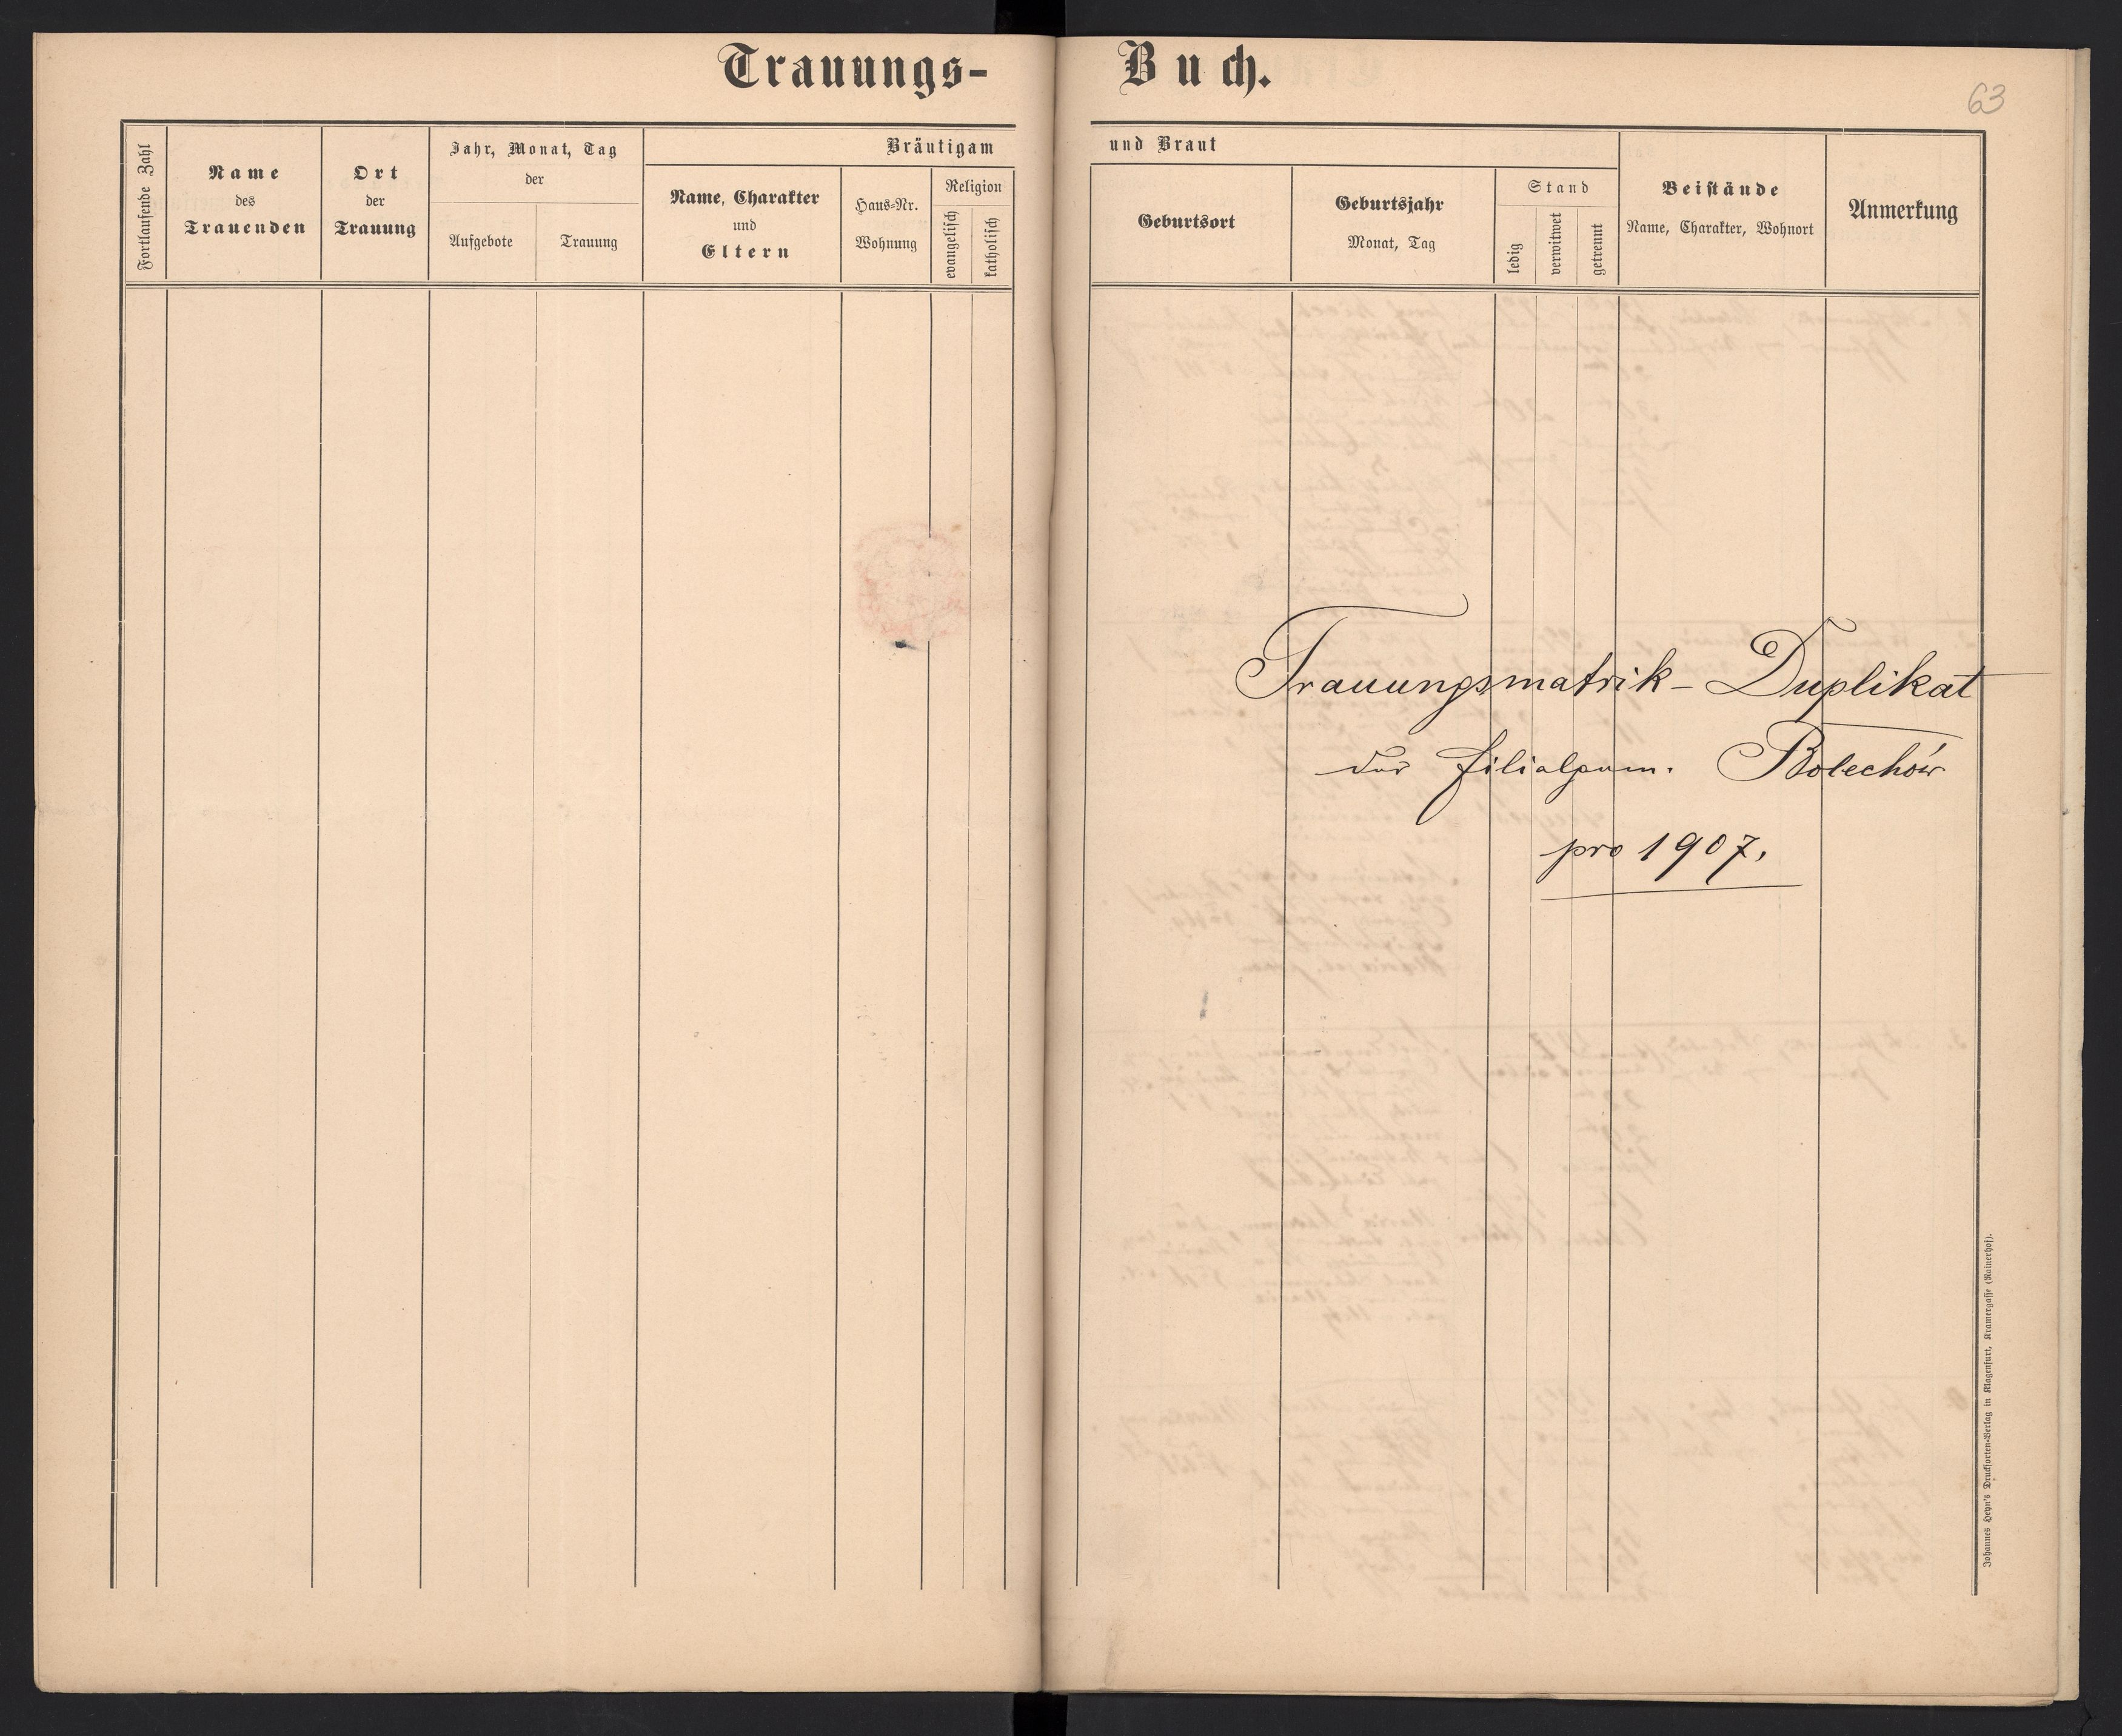 Trauungs-Buch.
63
Fortlaufende Zahl
Name
des
Trauenden
Ort
der
Trauung
Jahr, Monat, Tag
der
Aufgebote
Trauung
Bräutigam
Name, Charakter
und
Eltern
Haus-Nr.
Wohnung
Religion
evangelisch
katholisch
und Braut
Geburtsort
Geburtsjahr
Monat, Tag
Stand
ledig
verwitwet
getrennt
Beistände
Name, Charakter, Wohnort
Anmerkung
Trauungsmatrik-Duplikat
der Filialgem. Bolechów
pro 1907.
Johannes Heyn's Drucksorten-Verlag in Klagenfurt, Kramergasse (Rainerhof).